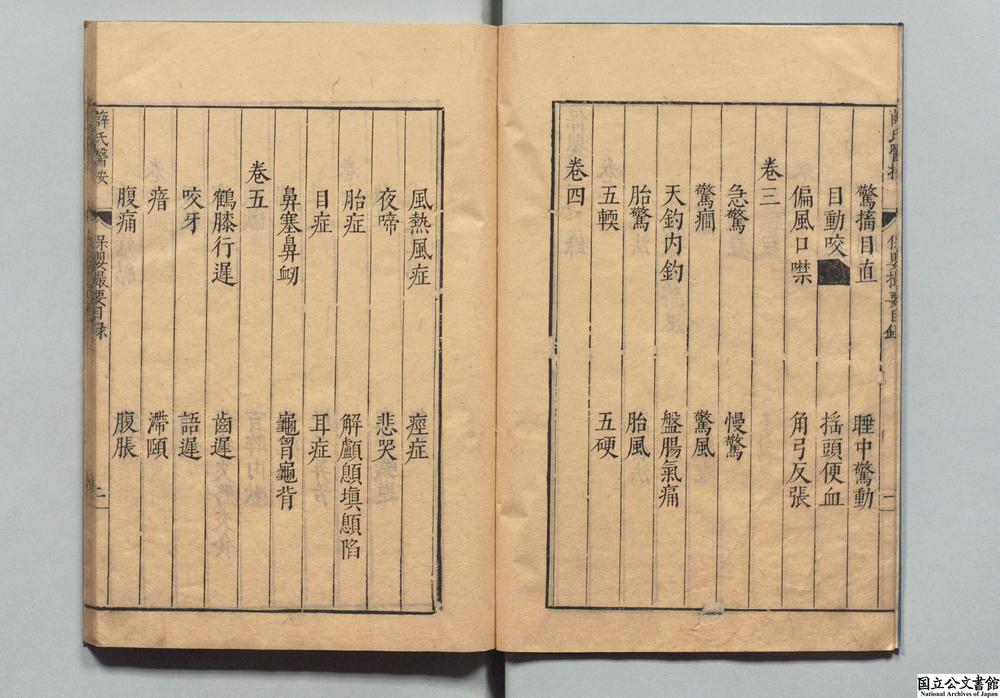 薛氏醫按
保嬰撮要目錄
二
驚搐目直 睡中驚動
目動咬 搖頭便血
偏風口噤 角弓反張
卷三
急驚 慢驚
驚癇 驚風
天釣內釣 盤腸氣痛
胎驚 胎風
五輭 五硬
卷四
風熱風症 痙症
夜啼 悲哭
胎症 解顱顖塡顖陷
目症 耳症
鼻塞鼻衂 龜胷龜背
卷五
鶴膝行遲 齒遲
咬牙 語遲
瘖 滯頤
腹痛 腹脹
薛氏醫按
保嬰撮要目録
二
国立公文書館
National Archives of Japan